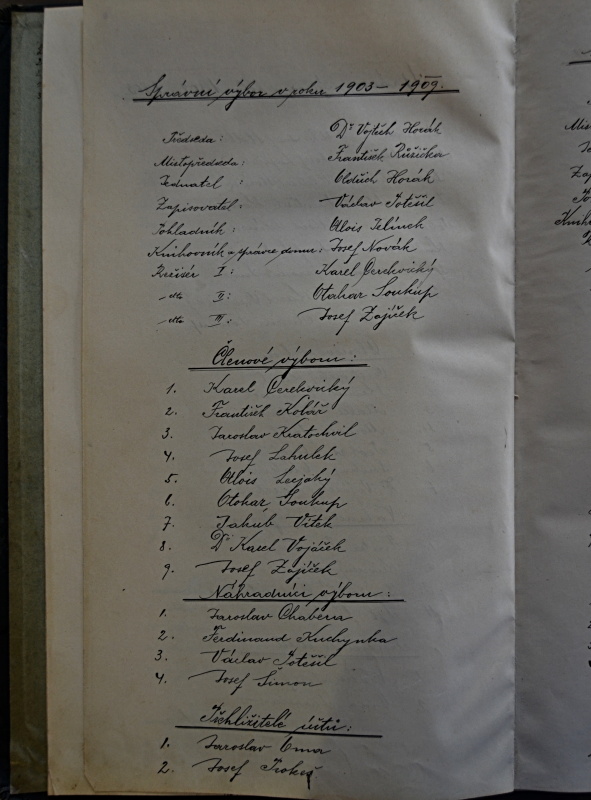 Správní výbor v roku 1903 – 1909.
Předseda: Dr Vojtěch Horák
Místopředseda: František Růžička
Jednatel: Oldřich Horák
Zapisovatel: Václav Potěšil
Pokladník: Alois Jelínek
Knihovník a správce domu: Josef Novák
Režisér I: Karel Cerekvický
dto II: Otakar Soukup
dto III: Josef Zajíček
Členové výboru:
1. Karel Cerekvický
2. František Kolář
3. Jaroslav Kratochvil
4. Josef Lahulek
5. Alois
6. Otokar Soukup
7. Jakub Vítek
8. Dr Karel Vojáček
9. Josef Zajíček
Náhradníci výboru:
1. Jaroslav Chabera
2. Ferdinand Kuchynka
3. Václav Potěšil
4. Josef Šimon
Přehlížitelé účtů:
1. Jaroslav
2. Josef